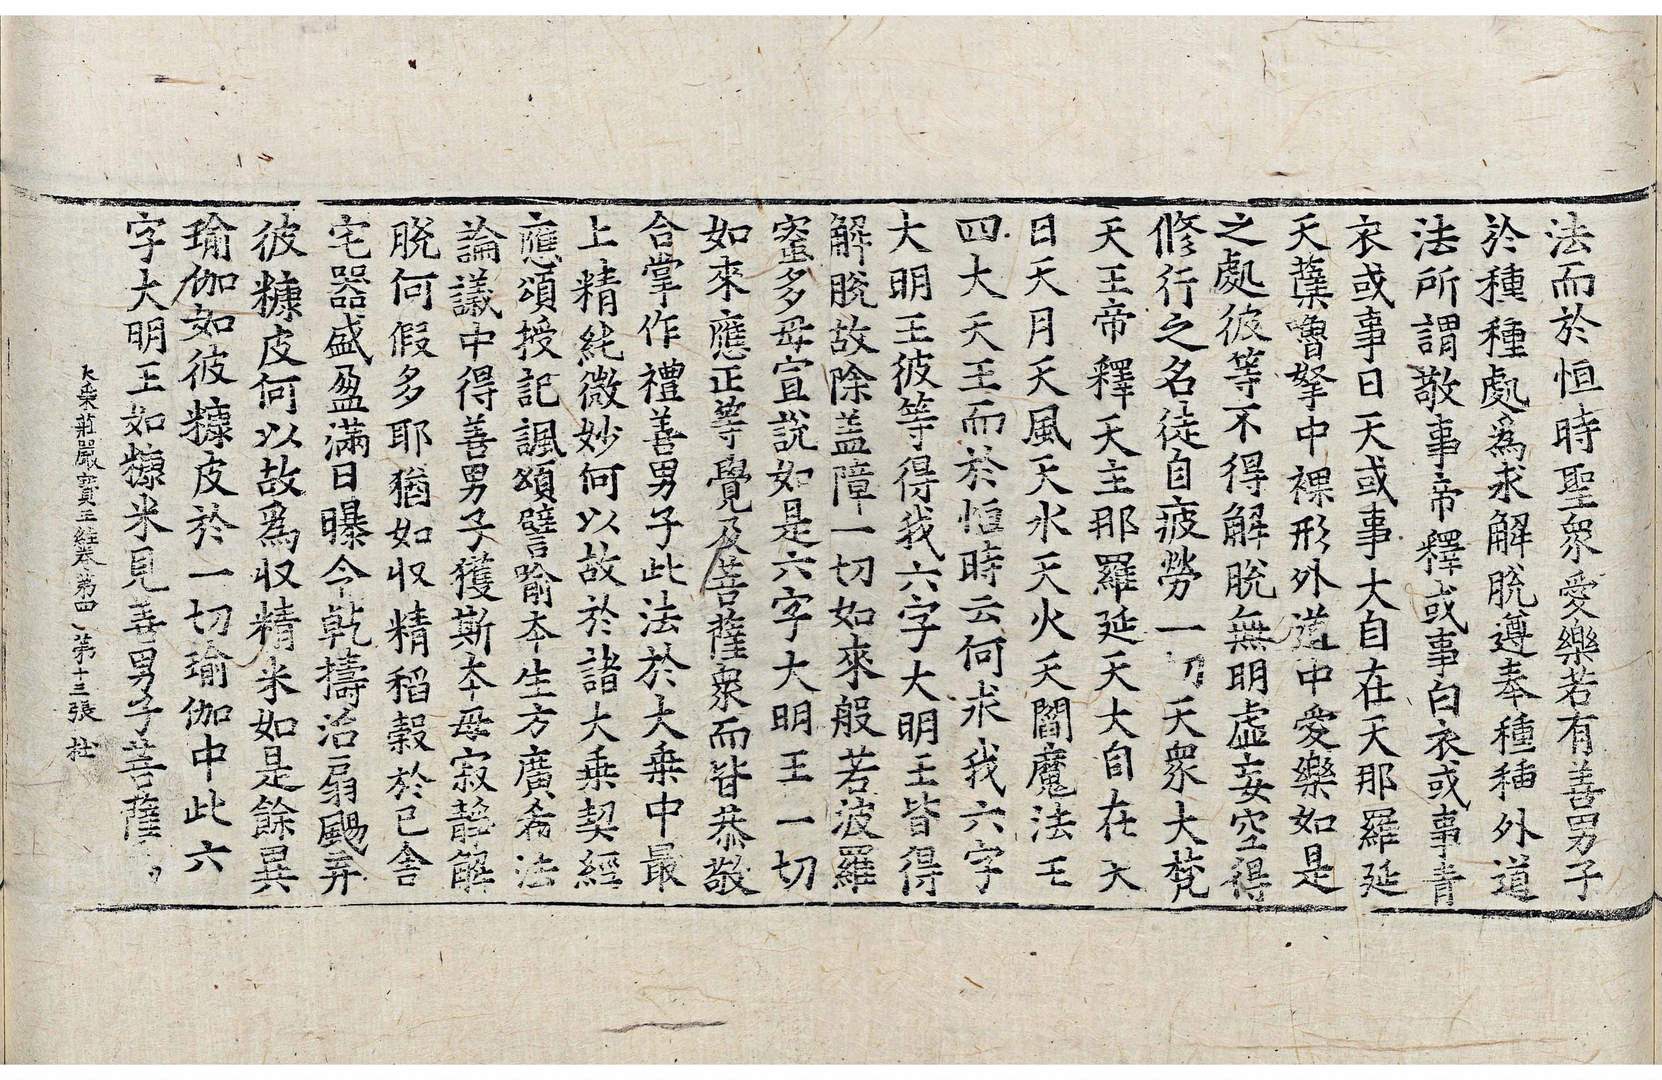 法而於恒時聖衆愛樂若有善男子
於種種處爲求解脫遵奉種種外道
法所謂敬事帝釋或事白衣或事青
衣或事日天或事大自在天那羅延
天蘖嚕拏中裸形外道中愛樂如是
之處彼等不得解脫無明虛妄空得
修行之名徒自疲勞一切天衆大梵
天王帝釋天主那羅延天大自在天
日天月天風天水天火天閻魔法王
四大天王而於恒時云何求我六字
大明王彼等得我六字大明王皆得
解脫故除盖障一切如來般若波羅
蜜多母宣說如是六字大明王一切
如來應正等覺及菩薩衆而皆恭敬
合掌作禮善男子此法於大乘中最
上精純微妙何以故於諸大乘契經
應頌授記諷頌譬喻本生方廣希法
論議中得善男子獲斯本母寂靜解
脫何假多耶猶如収精稻穀於己舍
宅器盛盈滿日曝令乾擣治扇颺弃
彼糠皮何以故爲収精米如是餘異
瑜伽如彼糠皮於一切瑜伽中此六
字大明王如糠米見善男子菩薩
大乘莊嚴寶王經卷第四 第十三張 杜